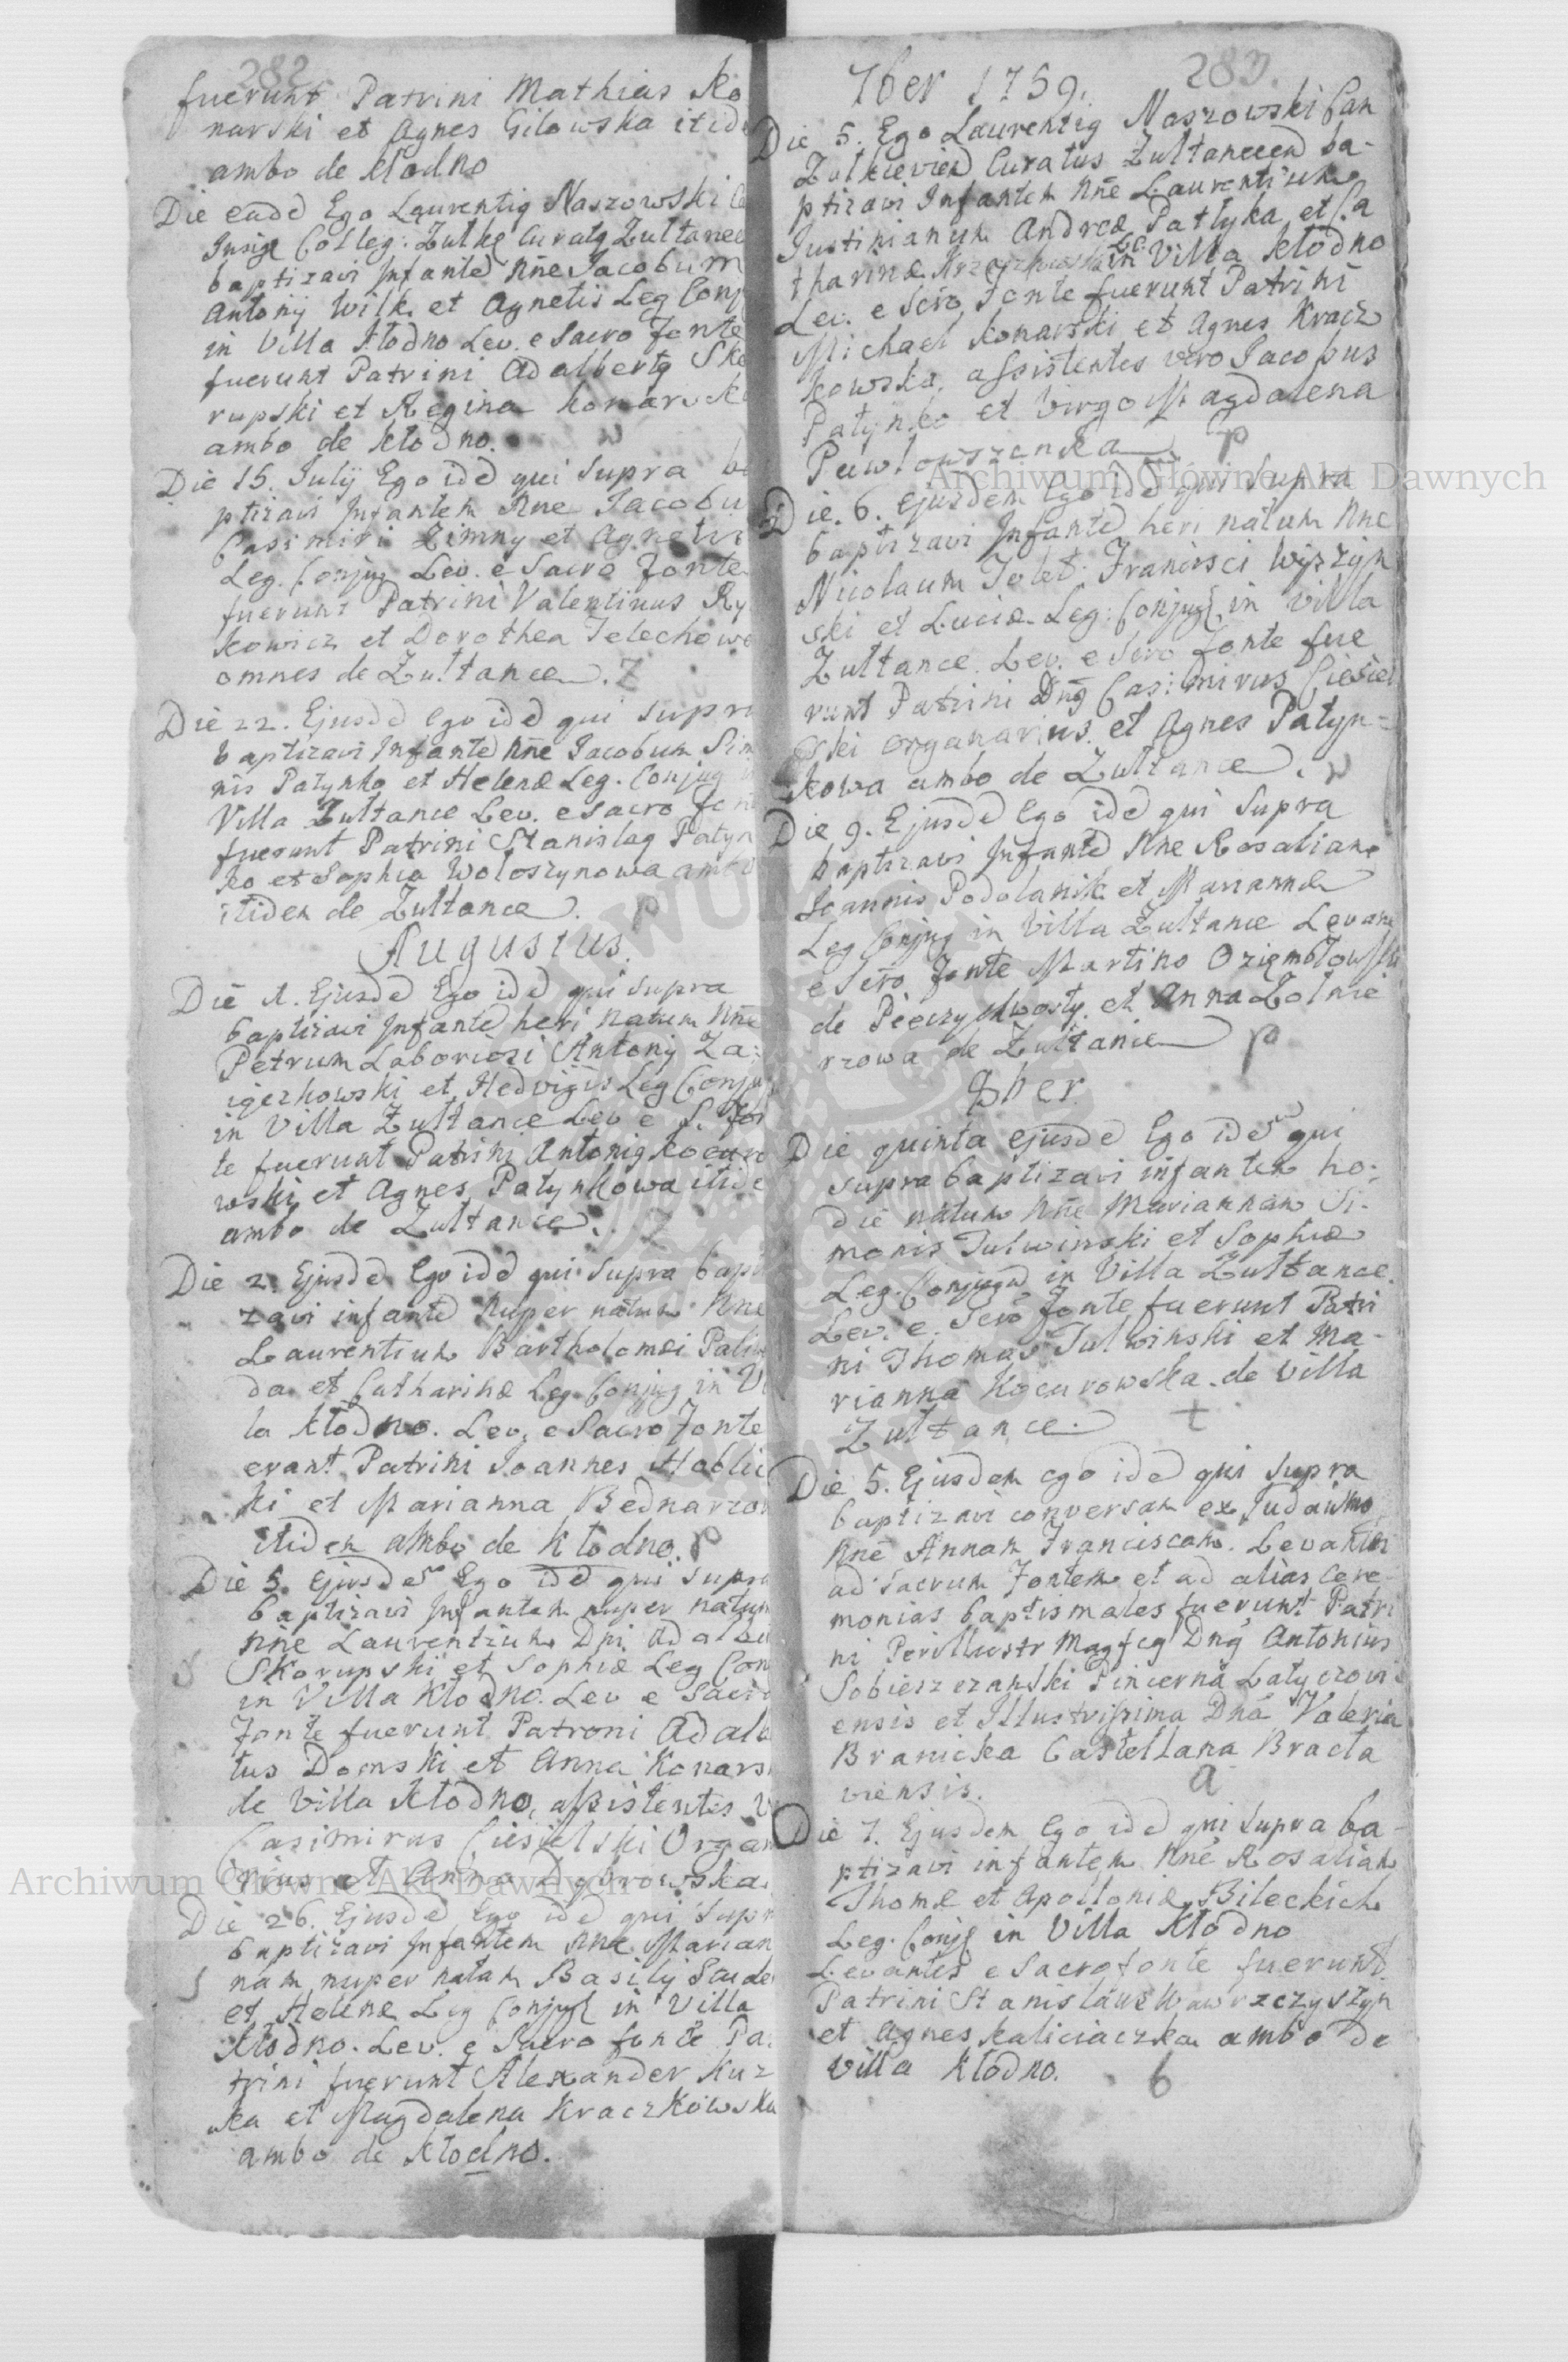 282
fuerunt Patrini Mathias Ko
narski et Agnes Gilowska itide
ambo de Kłodno
Die eade Ego Laurentig Naszowski
Insig Colleg: Zulke Curatg Zultanec
baptizavi Infante Nne Iacobum
Antonij Wilk et Agnetis Leg Conj
in Villa Kłodno Lev. e Sacro Fonte
fuerunt Patrini Adalbertg Sko
rupski et Regina Konarsk
ambo de Kłodno.
Die 15. Iulij Ego ide qui supra ba
ptizavi Infantem Nne Iacobu
Casimiri Zimny et Agnetis
Leg. Conjug Lev. e Sacro Fonte
fuerunt Patrini Valentinus Ry
kowicz et Dorothea Telechowa
omnes de Zultance. Z
Die 22. Ejusde Ego ide qui supra
baptizavi Infante Nne Iacobum Sim
nis Patynko et Helenæ Leg. Conjug
Villa Zultance Lev. e sacro fon
fuerunt Patrini Stanislag Patyn
ko et Sophia Woloszynowa ambo
itidem de Zultance. p
Augustus.
Die 1. Ejusde Ego ide qui supra
baptizavi Infante heri natum Nne
Petrum Laboriosi Antonij Za:
et Hedvigis Leg Conju
in Villa Zultance Lev e S. Fon
te fuerunt Patrini Antonig Kocuro
wski et Agnes Patynkowa itide
ambo de Zultance. Z
Die 2. Ejusde Ego ide qui supra bapti
zavi infante nuper natum Nne
Laurentium Bartholomæi Paliw
da et Catharinæ Leg. Conjug in Vi
la Kłodno. Lev. e Sacro Fonte
erant Patrini Ioannes Hablic
ki et Marianna Bednarzow
itidem ambo de Kłodno. p
Die 5. Ejusde Ego ide qui supra
baptizavi Infantem nuper natum
Nne Laurentium Dni Adalb
Skorupski et Sophiæ Leg Con
in Villa Kłodno. Lev e Sacro
Fonte fuerunt Patroni Adalb
tus Domski et Anna Konars
de Villa Kłodno, assistentes v
Casimirus Ciesielski Organ
rius et Anna Dąbrowska.
Die 26. Ejusde Ego ide qui supr
baptizavi Infantem Nne Marian
nam nuper natam Basilij
et Helenæ Leg Conjug in Villa
Kłodno. Lev. e Sacro fonte Pa
trini fuerunt Alexander Kuz
ka et Magdalena Kraczkowska
ambo de Kłodno.
7ber 1759. 283.
Die 5. Ego Laurentig Naszowski Can
Zulkievien Curatus Zultancen ba-
ptizavi Infantem Nne Laurentium
Iustinianum Andreæ Patlyka et Ca
tharinæ in Villa Kłodno
Lev. e Scro Fonte fuerunt Patrini
Michael Konarski et Agnes Kracz
kowska, assistentes vero Iacobus
Patynko et Virgo Magdalena
Pawłowszonka p
Die 6. ejusdem Ego ide qui supra
baptizavi Infante heri natum Nne
Nicolaum Tolet. Francisci Wyszyn
ski et Luciæ Leg: Conjug in Villa
Zultance. Lev. e Scro Fonte fue
runt Patrini Dng Casimirus Ciesiel
ski organarius et Agnes Patyn=
kowa ambo de Zultance.
Die 9. Ejusde Ego ide qui supra
baptizavi Infante Nne Rosaliam
Ioannis Podolanik et Mariannæ
Leg Conjug in Villa Zultance Levan
e Scro Fonte Martino Oziembłowski
de Pieczychwosty et Anna Zolnie
rzowa de Zultanie p
8ber.
Die quinta ejusde Ego ide qui
supra baptizavi infantem ho:
die natum Nne Mariannam Si-
monis Tulwinski et Sophiæ
Leg. Conjugu in Villa Zultance.
Lev. e Scro Fonte fuerunt Patri
ni Thomas Tulwinski et Ma-
rianna Kocurowska de villa
Zultance. t
Die 5. Ejusdem ego ide qui supra
baptizavi conversam ex Iudaismo
Nne Annam Franciscam. Levantes
ad sacrum Fontem et ad alias cere-
monias baptismales fuerunt Patri
ni Perillustr Magfcg Dng Antonius
Sobieszczanski Pincerna Latyczovi-
ensis et Illustrissima Dna Valeria
Branicka Castellana Bracla
viensis. a
Die 7. Ejusdem Ego ide qui supra ba-
ptizavi infantem Nne Rosaliam
Thomæ et Apolloniæ Bileckich
Leg. Conj in Villa Kłodno
Levantes e Sacro fonte fuerunt
Patrini Stanislaus Wawrzczyszyn
et Agnes Kaliciaczka ambo de
Villa Kłodno. b
Archiwum Główne Akt Dawnych
Archiwum Główne Akt Dawnych